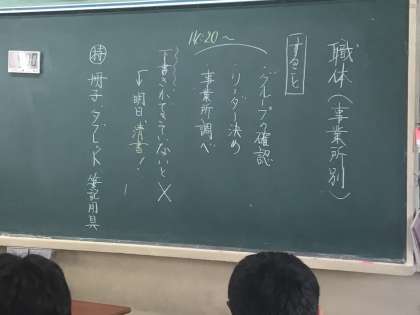 職体(事業所別)
すること
14:20~
・グループの確認
・リーダー決め
・事業所調べ
下書きができていないと×
↓明日、清書!
持 冊子・タブレット 筆記用具